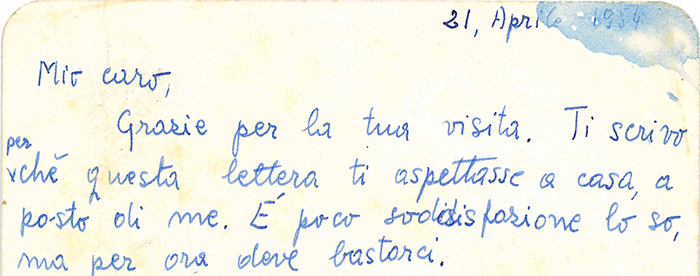 21, Aprile 1954
Mio caro,
Grazie per la tua visita. Ti scrivo
perchè questa lettera ti aspettasse a casa, a
posto di me. È poco sodisfazione lo so,
ma per ora deve bastarci.